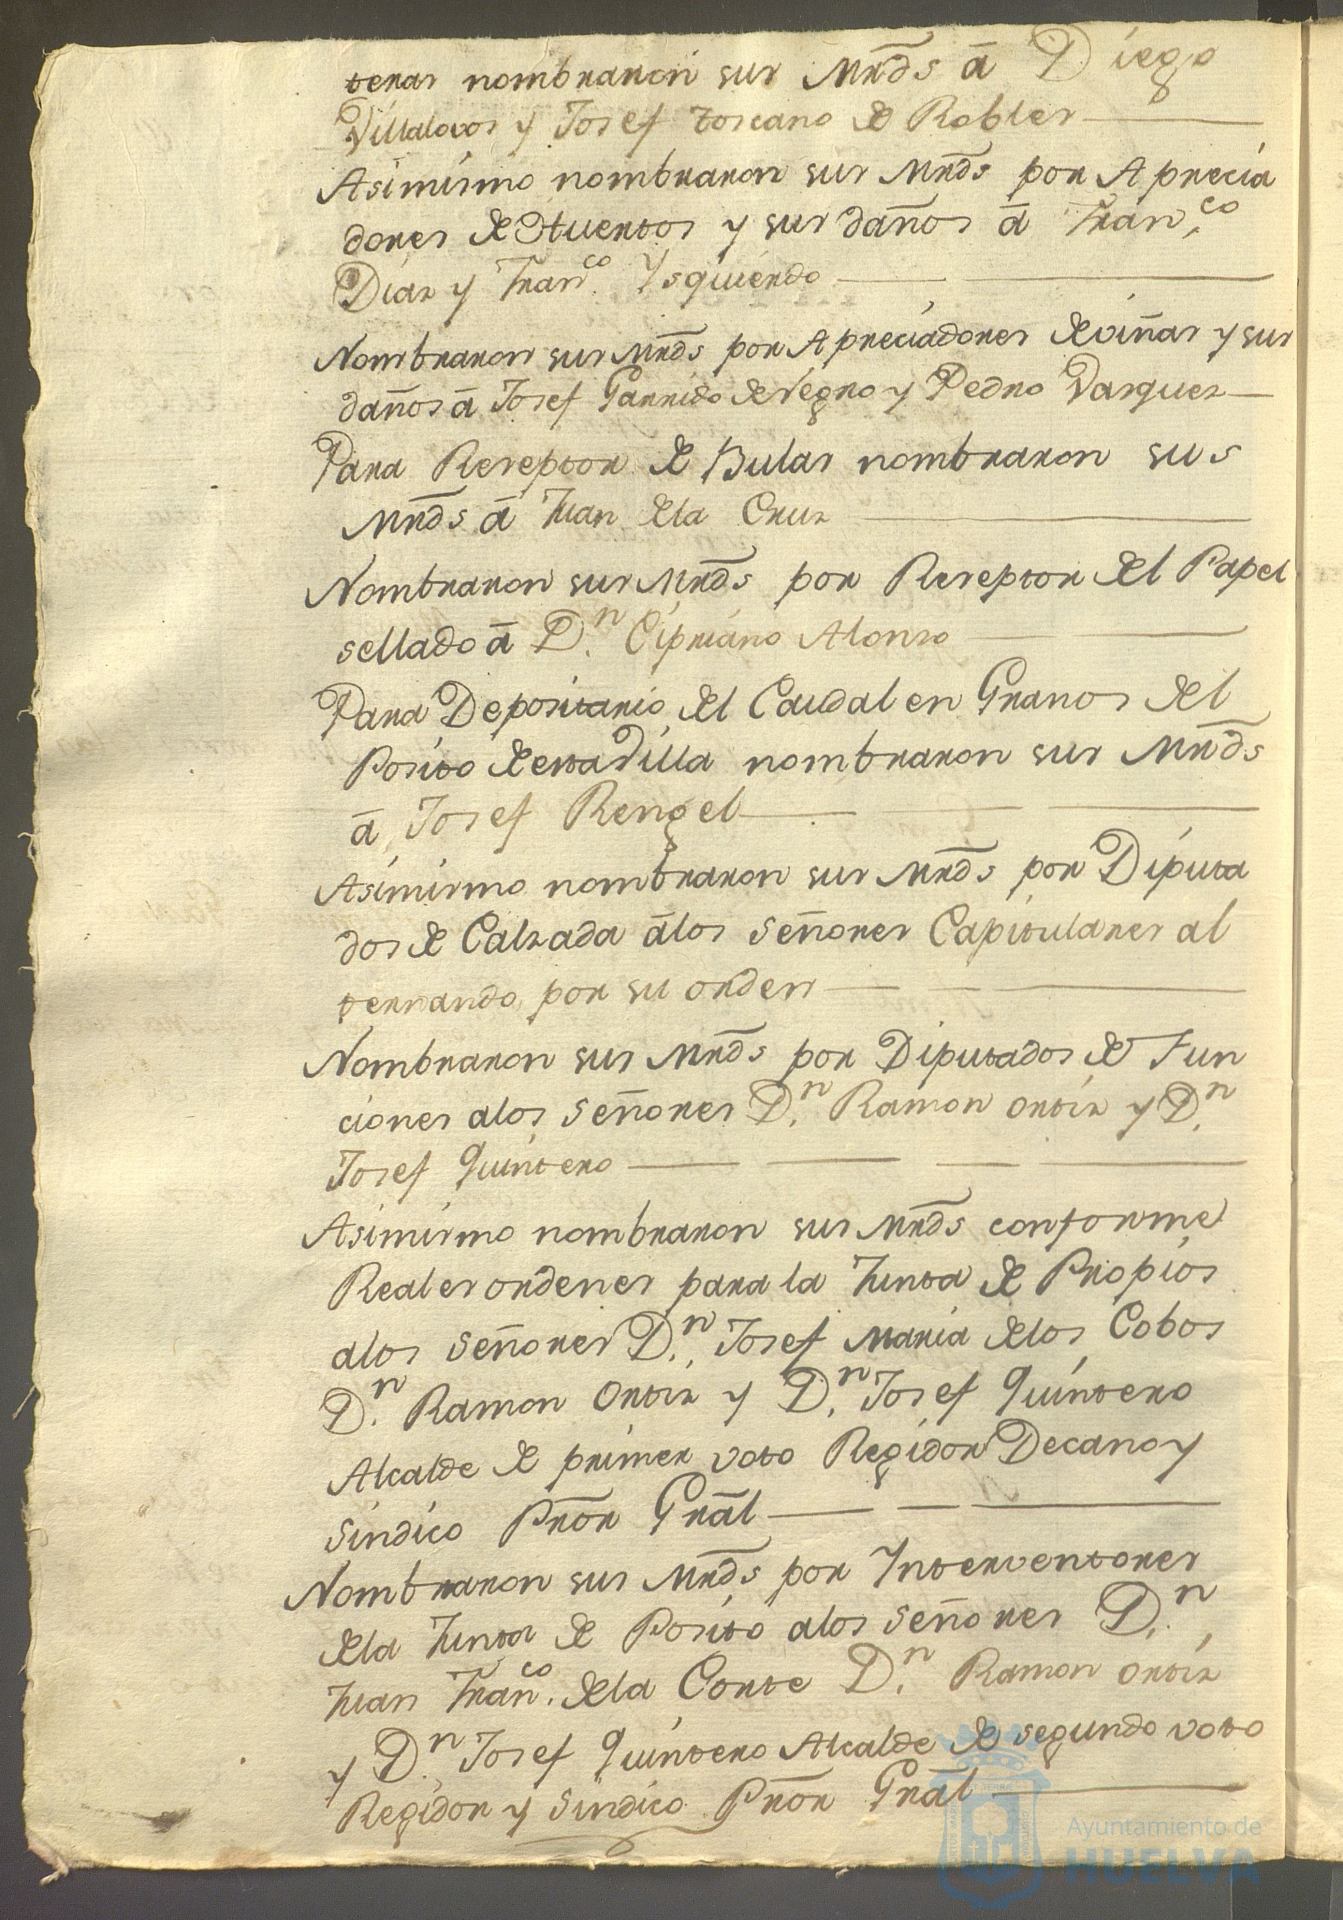 teras nombraron sus Mrds â Diego
Villalovos y Josef toscano de Robles
Asimismo nombraron sus Mrds por Aprecia
dores de Huertos y sus daños â Fran,co
Diaz y Franco. Ysquierdo
Nombraron sus Mrds por Apreciadores de viñas y sus
daños â Josef Garrido de Negro y Pedro Vasquez
Para Reseptor de Bulas nombraron sus
Mrds â Juan de la Cruz
Nombraron sus Mrds por Reseptor del Papel
sellado â Dn. Cipriano Alonso
Para Depositario del Caudal en Granos del
Posito de esta Villa nombraron sus Mrds
â Josef Rengel
Asimismo nombraron sus Mrds por Diputa
dos de Calzada â los señores Capitulares al
ternando por su orden
Nombraron sus Mrds por Diputados de Fun
ciones a los señores Dn. Ramon Ortiz y Dn.
Josef Quintero
Asimismo nombraron sus Mrds conforme
Reales ordenes para la Junta de Propios
a los señores Dn. Josef Maria de los Cobos
Dn. Ramon Ortiz y Dn. Josef Quintero
Alcalde de primer voto Regidor Decano y
sindico Pror Gral
Nombraron sus Mrds por Interventores
de la Junta de Posito a los señores Dn.
Juan Franco. de la Corte Dn. Ramon Ortiz
y Dn. Josef Quintero Alcalde de segundo voto
Regidor y sindico Pror Gral
Ayuntamiento de
HUELVA